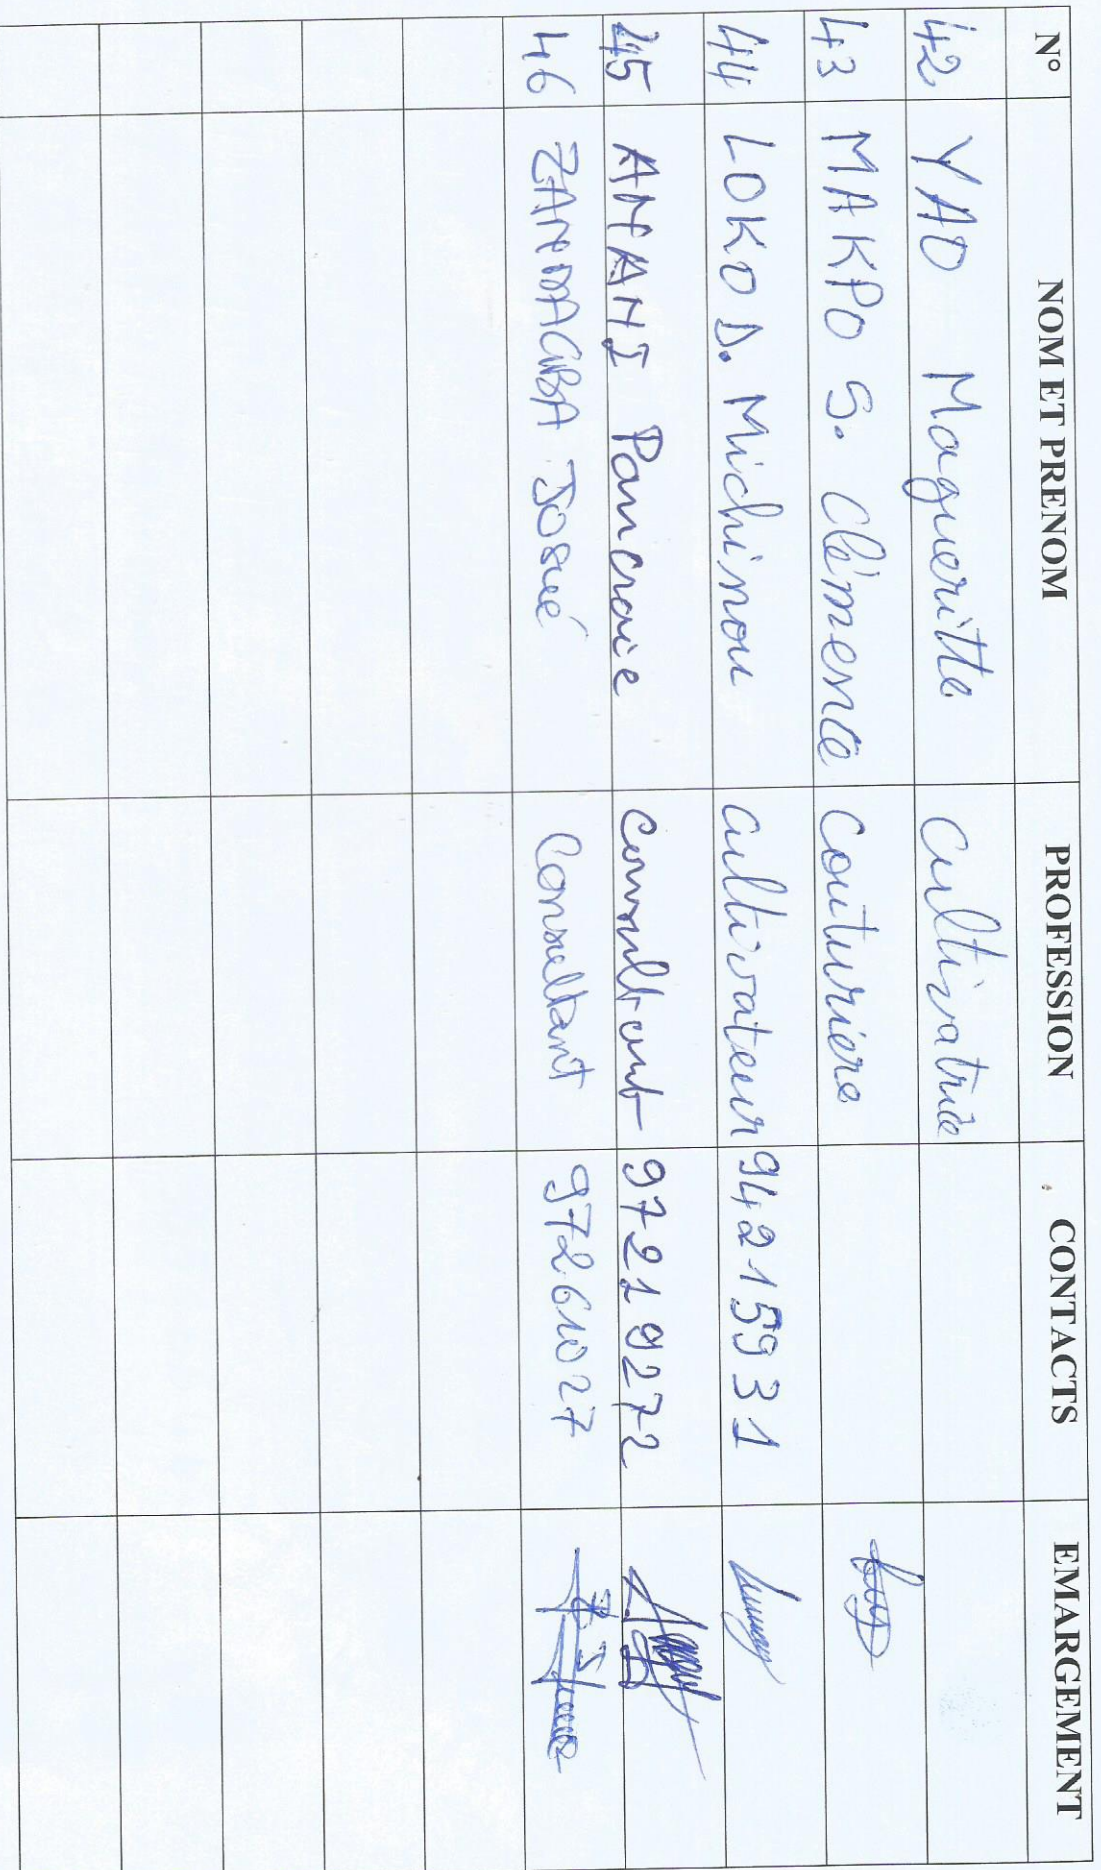 N° NOM ET PRENOM PROFESSION CONTACTS EMARGEMENT
42 YAO Magueritte Cultivatrice
43 MAKPO S. Clémence Couturière
44 LOKO D. Michinou Cultivateur 94215931
45 ANFANI Pancraie Consultant 97219272
46 ZANDAGBA Josué Consultant 97261027